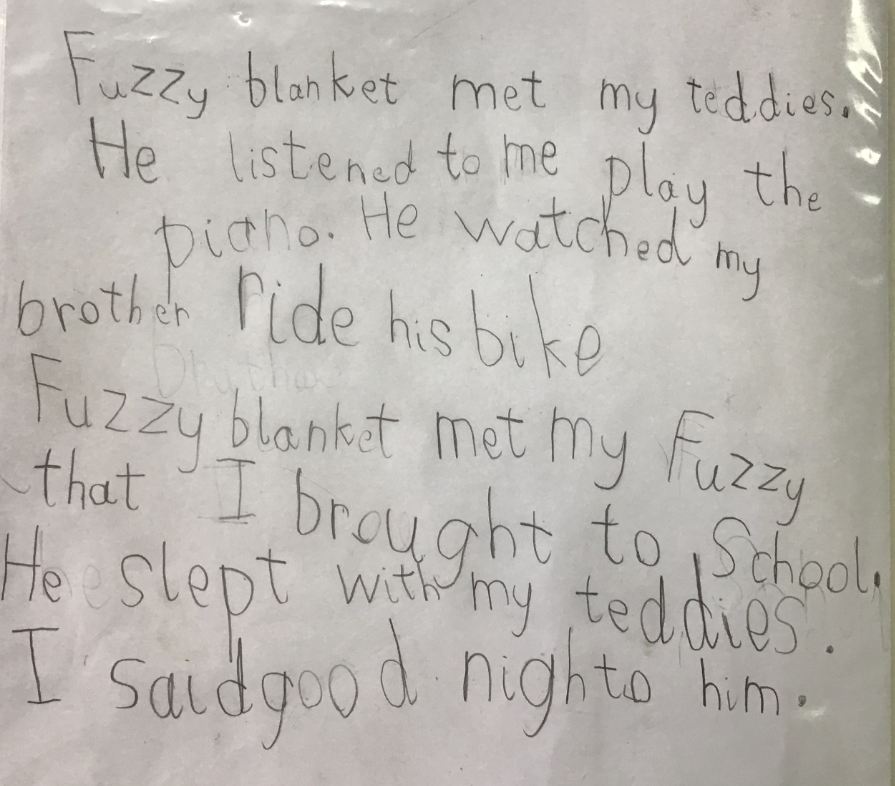 Fuzzy blanket met my teddies.
He listened to me play the
piano. He watched my
brother ride his bike
Fuzzy blanket met my Fuzzy
that I brought to School.
He slept with my teddies.
I said good nighto him.